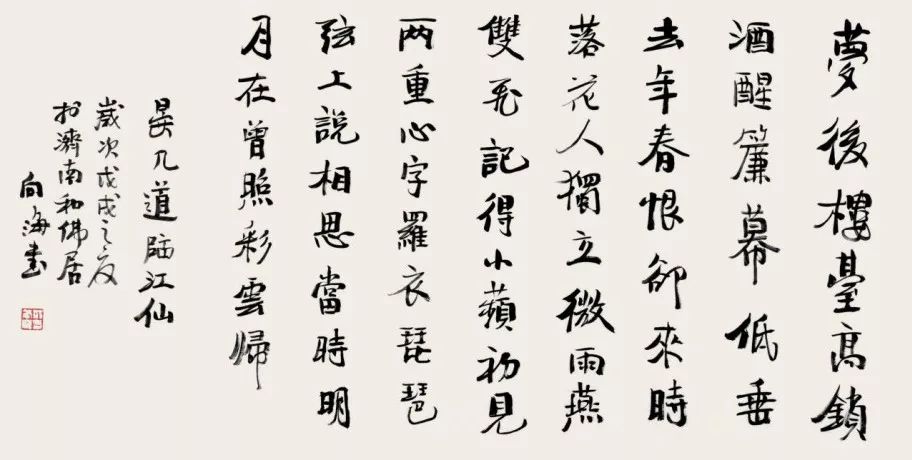 夢後樓臺高鎖
酒醒簾幕低垂
去年春恨卻來時
落花人獨立微雨燕
雙飛記得小蘋初見
两重心字羅衣琵琶
弦上說相思當時明
月在曾照彩雲歸
晏几道臨江仙
歲次戊戌之夏
於濟南和佛居
向海書